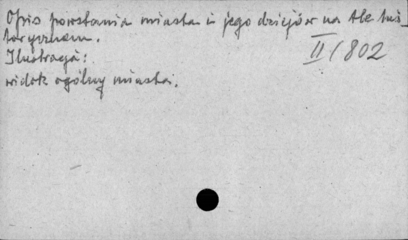 Opis powstania miasta i jego dziejów na tle his_
torycznem.
II/802
Ilustracja:
widok ogólny miasta.